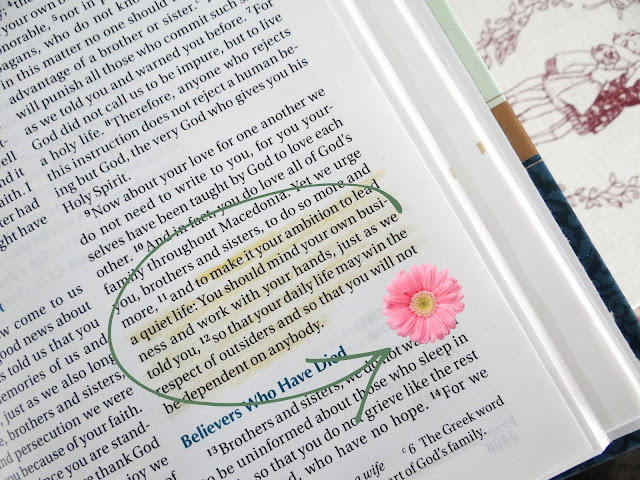 your own
not in
pagans, who do not know
in this matter no one should
advantage of a brother or sister.
will punish all those who commit such
as we told you and warned you before. ⁷For
God did not call us to be impure, but to live
a holy life. ⁸Therefore, anyone who rejects
this instruction does not reject a human be-
ing but God, the very God who gives you his
Holy Spirit.
⁹Now about your love for one another we
do not need to write to you, for you your-
selves have been taught by God to love each
other. ¹⁰And in fact, you do love all of God's
family throughout Macedonia. Yet we urge
you, brothers and sisters, to do so more and
more, ¹¹and to make it your ambition to lead
a quiet life: You should mind your own busi-
ness and work with your hands, just as we
told you, ¹²so that your daily life may win the
respect of outsiders and so that you will not
be dependent on anybody.
Believers Who Have Died
¹³Brothers and sisters we do not
to be uninformed about those who sleep in
so that you do not grieve like the rest
who have no hope. ¹⁴For we
ᶜ6 The Greek word
a wife
of God's family.
come to us
good news about
told us that you
of us and
just as we also long
brothers and sisters,
persecution we were
you because of your faith.
you are stand-
we thank God
joy we